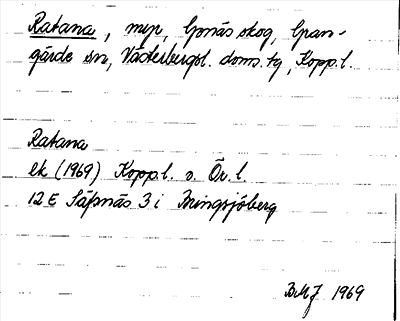 Ratana, myr, Gonäs skog, Gran-
gärde sn, Västerbergsl. doms. tg, Kopp. l.
Ratana
ek (1969) Kopp. l. o. Ör. l.
12 E Säfsnäs 3 i Bringsjöberg
BMJ 1969